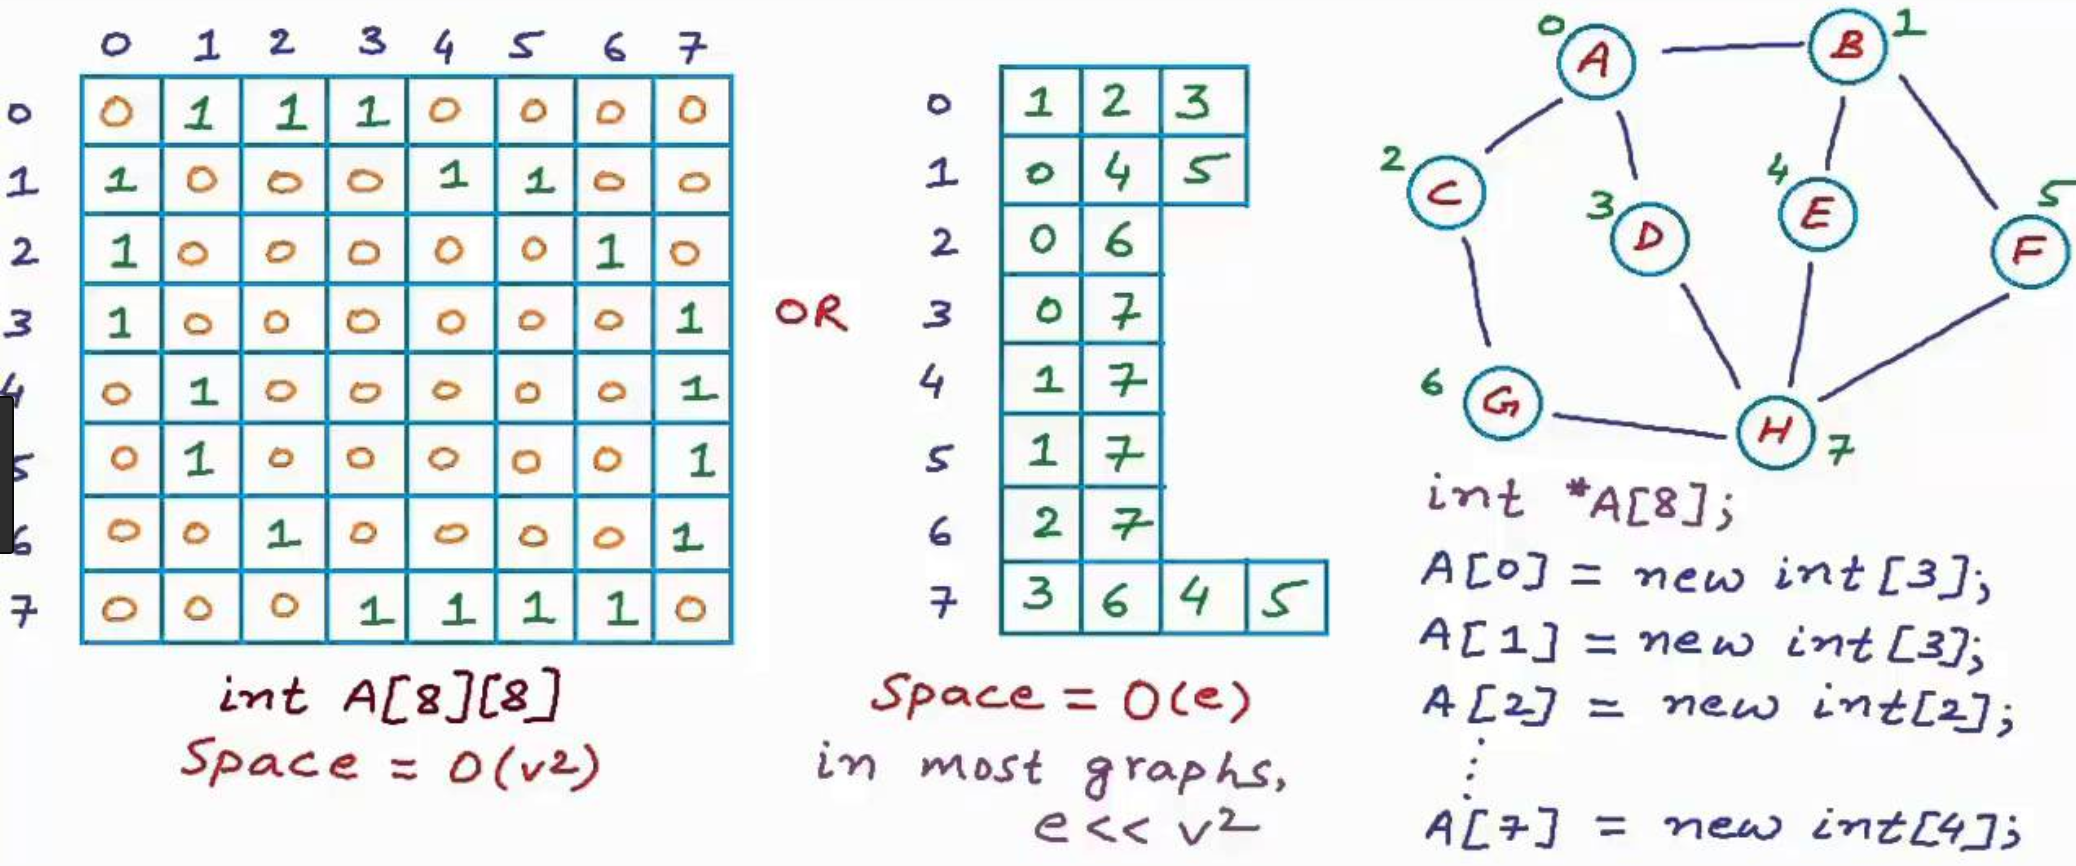 0 1 2 3 4 5 6 7
0 0 1 1 1 0 0 0 0
1 1 0 0 0 1 1 0 0
2 1 0 0 0 0 0 1 0
3 1 0 0 0 0 0 0 1
4 0 1 0 0 0 0 0 1
5 0 1 0 0 0 0 0 1
6 0 0 1 0 0 0 0 1
7 0 0 0 1 1 1 1 0
int A[8][8]
Space = O(v2)
OR
0 1 2 3
1 0 4 5
2 0 6
3 0 7
4 1 7
5 1 7
6 2 7
7 3 6 4 5
Space = O(e)
in most graphs,
e << v2
0 A B 1
2 C 3 D 4 E 5 F
6 G H 7
int *A[8];
A[0] = new int[3];
A[1] = new int[3];
A[2] = new int[2];
⋮
A[7] = new int[4];